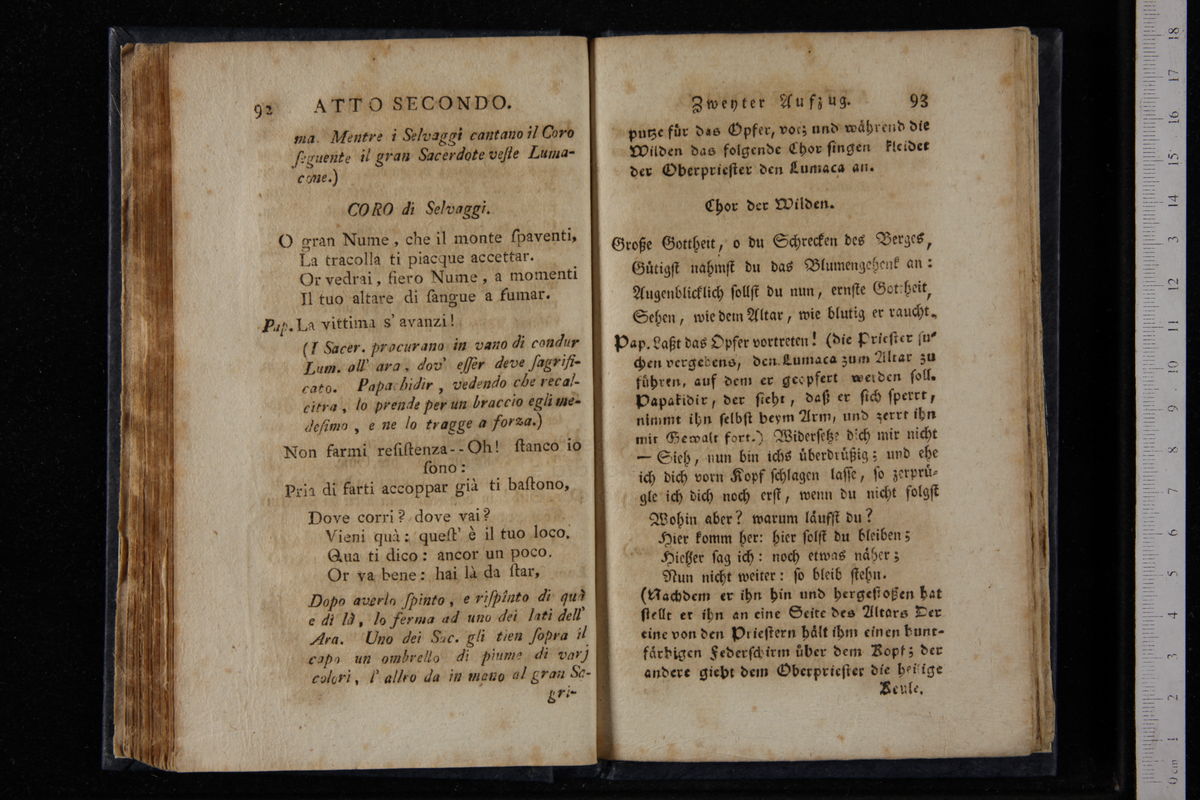 92 ATTO SECONDO.
ma. Mentre i Selvaggi cantano il Coro
ſeguente il gran Sacerdote veſte Luma-
cone.)
CORO di Selvaggi.
O gran Nume, che il monte ſpaventi,
La tracolla ti piacque accettar.
Or vedrai, fiero Nume, a momenti
Il tuo altare di ſangue a fumar.
Pap. La vittima s' avanzi!
(I Sacer. procurano in vano di condur
Lum. all' ara, dov' eſſer deve ſagrifi-
cato. Papachidir, vedendo che recal-
citra, lo prende per un braccio egli me-
deſimo, e ne lo tragge a forza.)
Non farmi reſiſtenza-- Oh! ſtanco io
ſono:
Pria di farti accoppar già ti baſtono,
Dove corri? dove vai?
Vieni quà: queſt' è il tuo loco.
Qua ti dico: ancor un poco.
Or va bene: hai là da ſtar,
Dopo averlo ſpinto, e riſpinto di quà
e di là, lo ferma ad uno dei lati dell'
Ara. Uno dei Sac. gli tien ſopra il
capo un ombrello di piume di varj
colori, l' altro da in mano al gran Sa-
gri-
Zweyter Aufzug. 93
putze für das Opfer, vor; und während die
Wilden das folgende Chor ſingen kleidet
der Oberprieſter den Lumaca an.
Chor der Wilden.
Große Gottheit, o du Schrecken des Berges,
Gütigſt nahmſt du das Blumengehenk an:
Augenblicklich ſollſt du nun, ernſte Gottheit,
Sehen, wie dem Altar, wie blutig er raucht.
Pap. Laßt das Opfer vortreten! (die Prieſter ſu-
chen vergebens, den Lumaca zum Altar zu
führen, auf dem er geopfert werden ſoll.
Papakidir, der ſieht, daß er ſich ſperrt,
nimmt ihn ſelbſt beym Arm, und zerrt ihn
mit Gewalt fort.) Widerſetze dich mir nicht
— Sieh, nun bin ichs überdrüßig; und ehe
ich dich vorn Kopf ſchlagen laſſe, ſo zerprü-
gle ich dich noch erſt, wenn du nicht folgſt
Wohin aber? warum läufſt du?
Hier komm her: hier ſolſt du bleiben;
Hieher ſag ich: noch etwas näher;
Nun nicht weiter: ſo bleib ſtehn.
(Nachdem er ihn hin und hergeſtoßen hat
ſtellt er ihn an eine Seite des Altars Der
eine von den Prieſtern hält ihm einen bunt-
färbigen Federſchirm über dem Kopf; der
andere giebt dem Oberprieſter die heilige
Keule.
0 cm 1 2 3 4 5 6 7 8 9 10 11 12 13 14 15 16 17 18